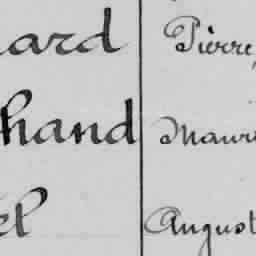 ard Pierre,
hand Mauri
el August